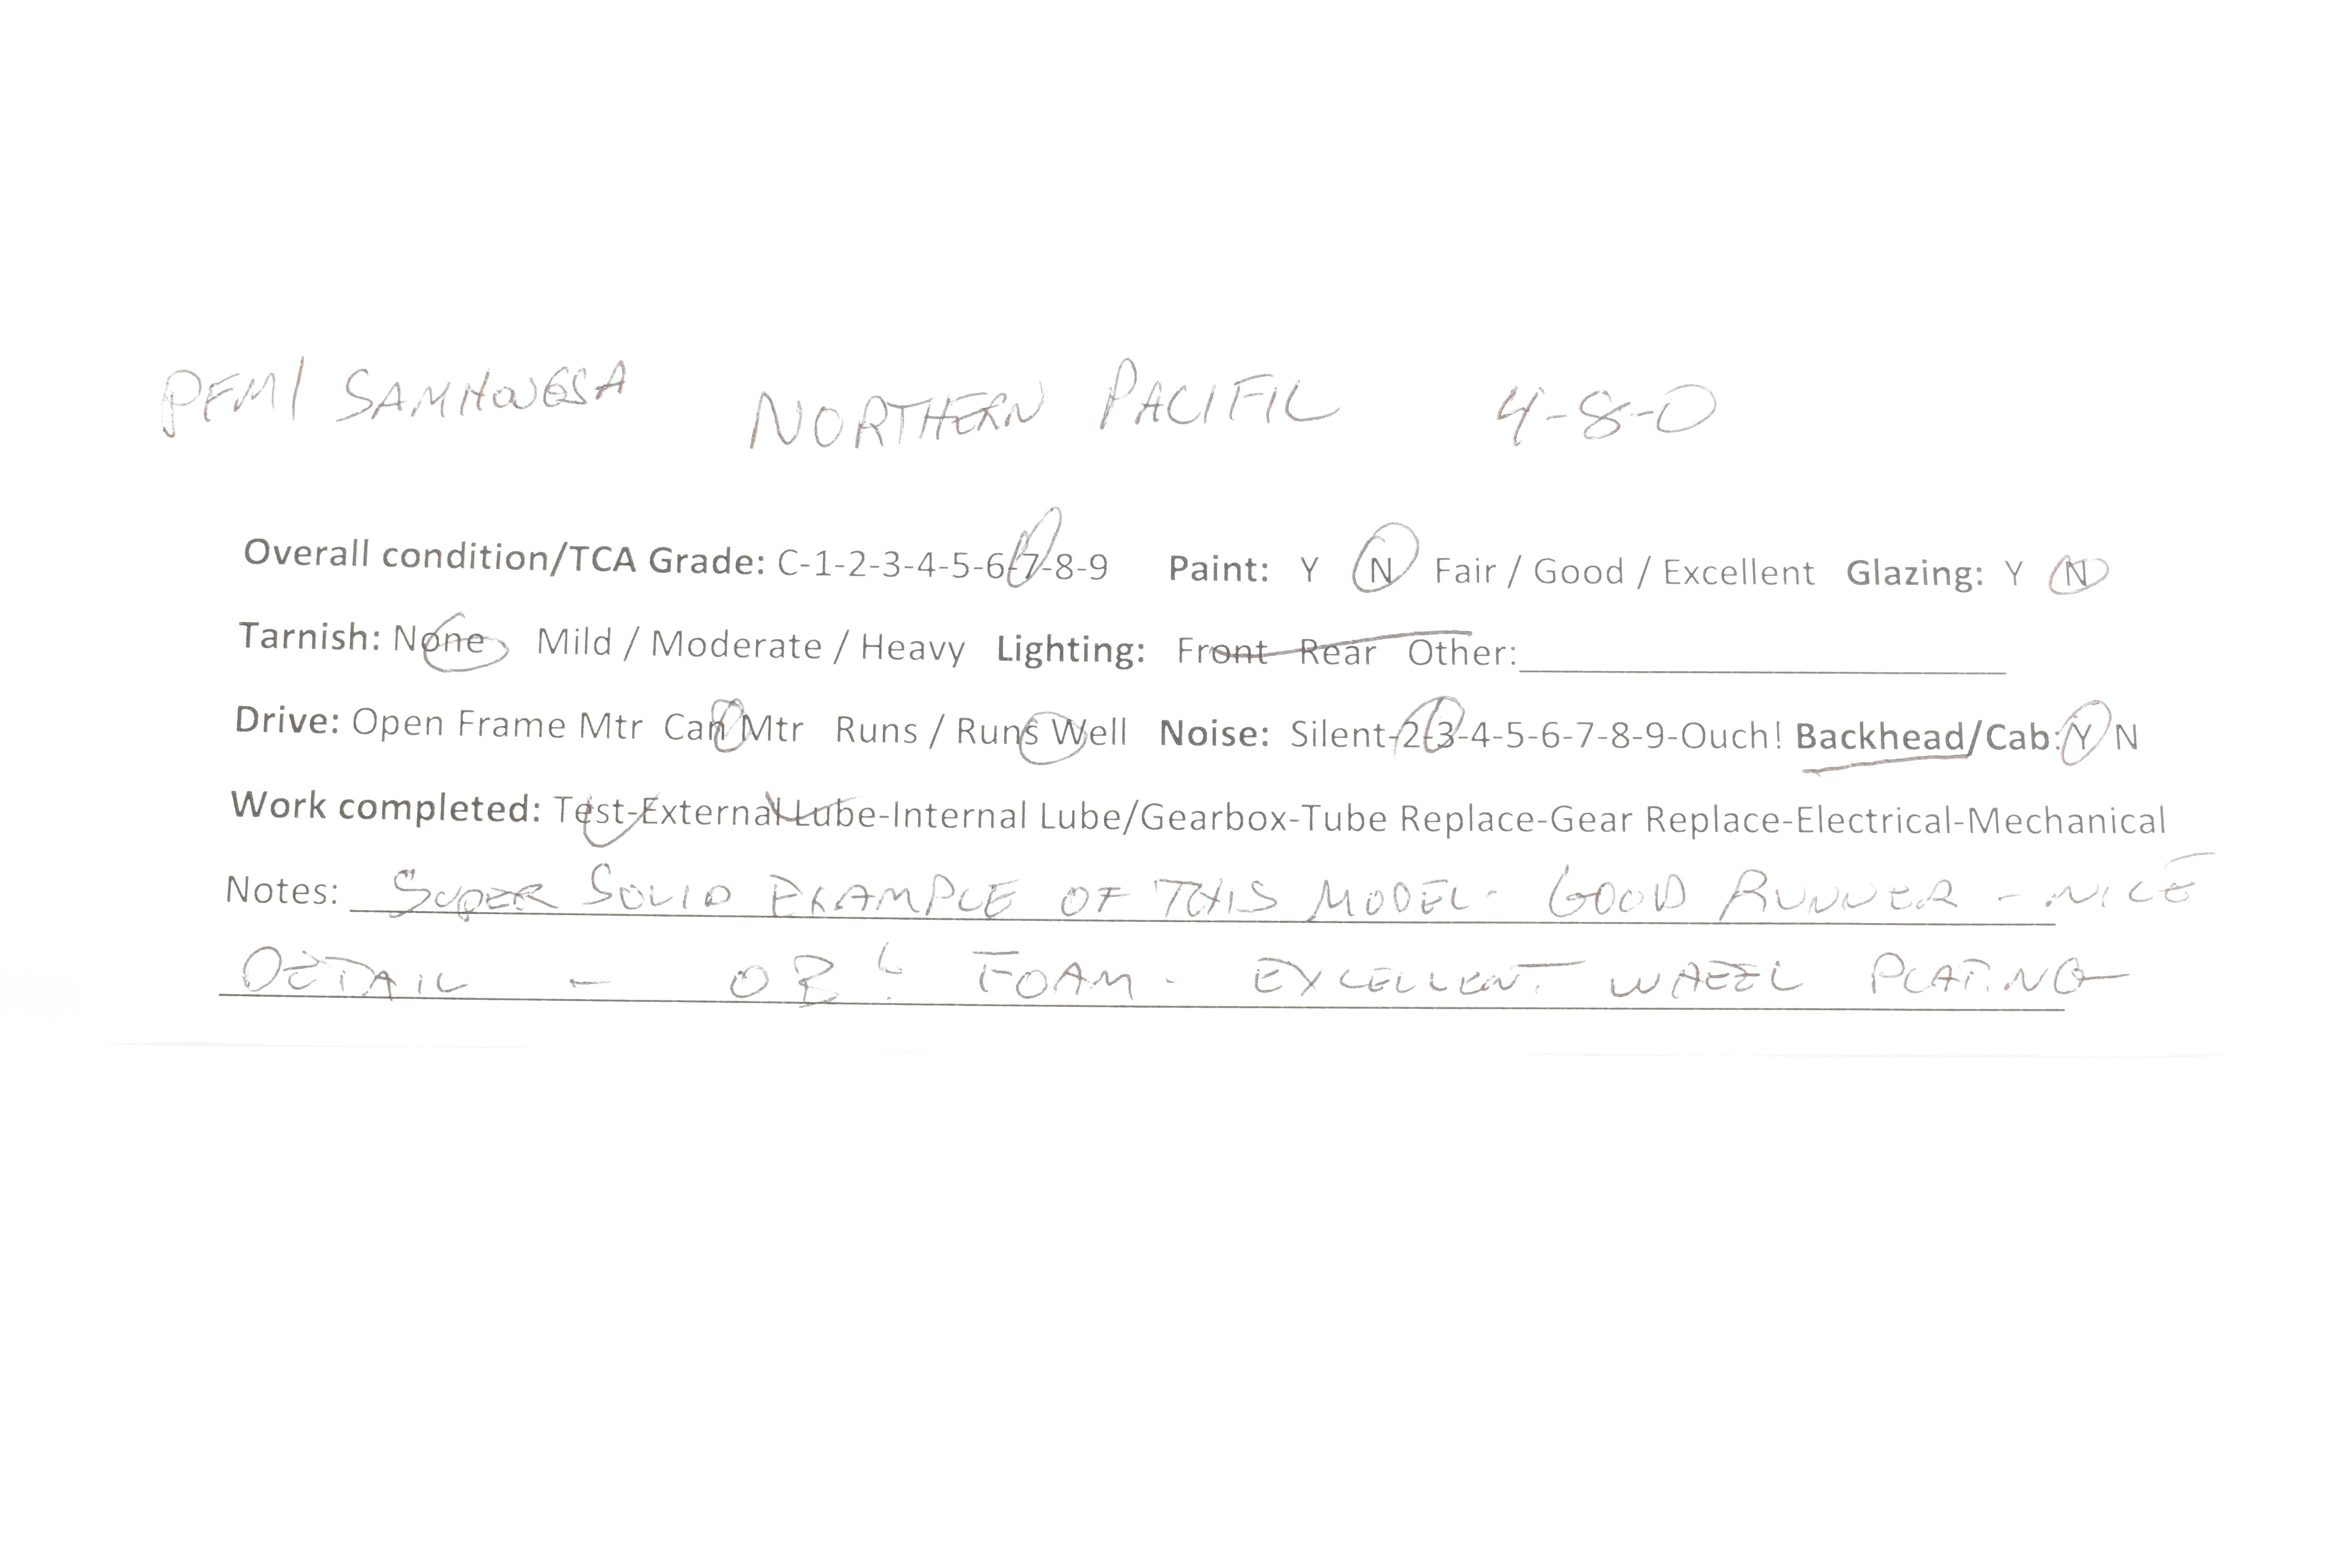 PFM/ SAMHONGSA NORTHERN PACIFIC 4-8-0
Overall condition/TCA Grade: C-1-2-3-4-5-6-7-8-9 Paint: Y N Fair / Good / Excellent Glazing: Y N
Tarnish: None Mild / Moderate / Heavy Lighting: Front Rear Other:
Drive: Open Frame Mtr Can Mtr Runs / Runs Well Noise: Silent-2-3-4-5-6-7-8-9-Ouch! Backhead/Cab: Y N
Work completed: Test-External Lube-Internal Lube/Gearbox-Tube Replace-Gear Replace-Electrical-Mechanical
Notes: SUPER SOLID EXAMPLE OF THIS MODEL - GOOD RUNNER - NICE
DETAIL - FOAM - EXCELLENT WHEEL PLATING